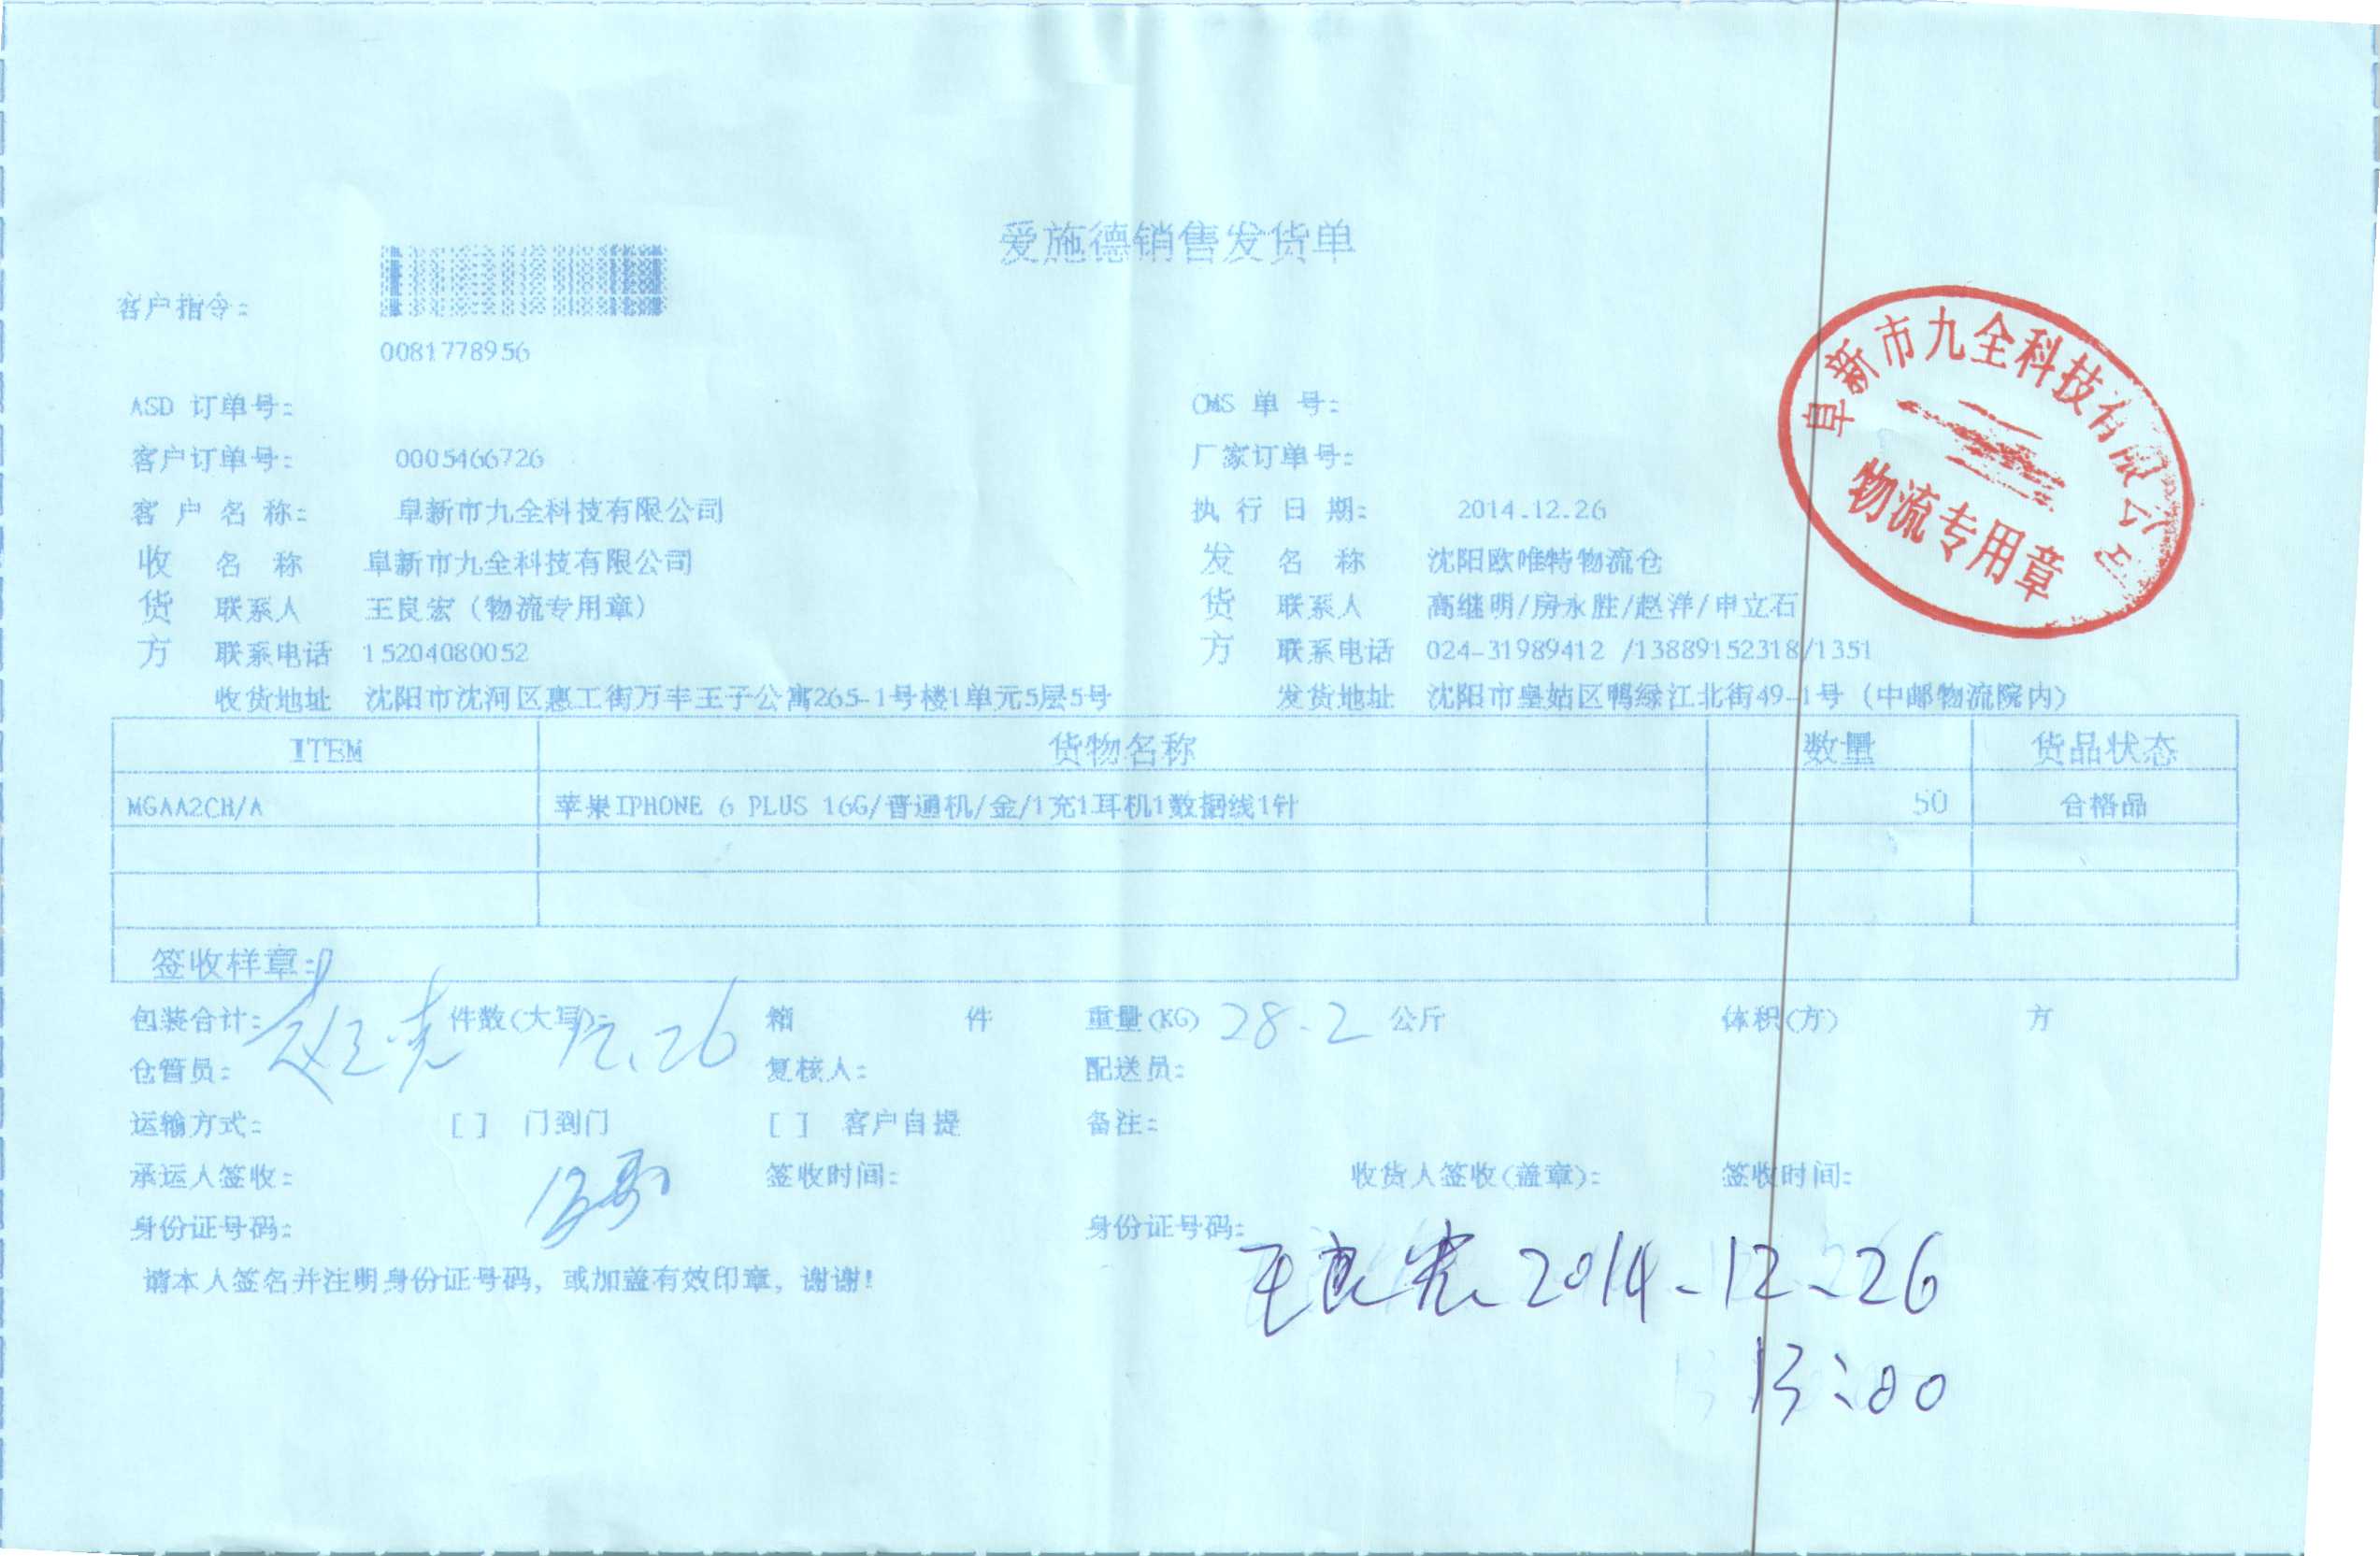 爱施德销售发货单
客户指令:
0081778956
ASD 订单号:
CMS 单 号:
客户订单号: 0005466726
厂家订单号:
客 户 名 称: 阜新市九全科技有限公司
执 行 日 期: 2014.12.26
收 名 称 阜新市九全科技有限公司
发 名 称 沈阳欧唯特物流仓
货 联系人 王良宏（物流专用章）
货 联系人 高继明/房永胜/赵洋/申立石
方 联系电话 15204080052
方 联系电话 024-31989412 /13889152318/1351
收货地址 沈阳市沈河区惠工街万丰王子公寓265-1号楼1单元5层5号
发货地址 沈阳市皇姑区鸭绿江北街49-1号（中邮物流院内）
阜新市九全科技有限公司
物流专用章
ITEM 货物名称 数量 货品状态
MGAA2CH/A 苹果IPHONE 6 PLUS 16G/普通机/金/1充1耳机1数据线1针 50 合格品
签收样章:
包装合计: 件数(大写): 箱 件 重量(KG) 28.2 公斤 体积(方) 方
12.26
仓管员: 复核人: 配送员:
运输方式: [ ] 门到门 [ ] 客户自提 备注:
承运人签收: 签收时间: 收货人签收(盖章): 签收时间:
身份证号码: 身份证号码:
王良宏 2014-12-26
13:00
请本人签名并注明身份证号码，或加盖有效印章，谢谢!